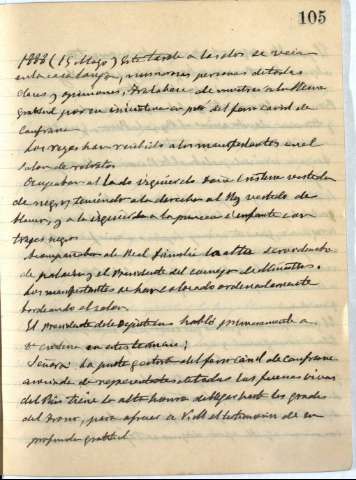 105
1888 (15 Mayo) Esta tarde a las dos se veia
en la casa Lonja, numerosas personas de todas
clases y opiniones, tratabase de mostrar a la Reina
gratitud por su iniciativa en pró del ferro carril de
Canfranc
Los reyes han recibido a los manifestantes en el
salon de retratos
Ocupaban al lado izquierdo Doña Cristina vestida
de negro, teniendo a la derecho al Rey vestido de
blanco, y a la izquierda a la princesa e infanta con
trajes negros
Acompañaban al Real familia la alta servidumbre
de palacio y el Presidente del consejo de ministros.
Los manifestantes se han colocado ordenadamente
bordeando el salon.
El Presidente de la Diputacion habló primeramente a
Dª Cristina en estos terminos;
Señora: La junta gestora del ferro carril de Canfranc
de representantes de todas las fuerzas vivas
del Pais tiene la alta honra de llegar hasta las gradas
del trono, para ofrecer a V. M. el testimonio de su
profunda gratitud